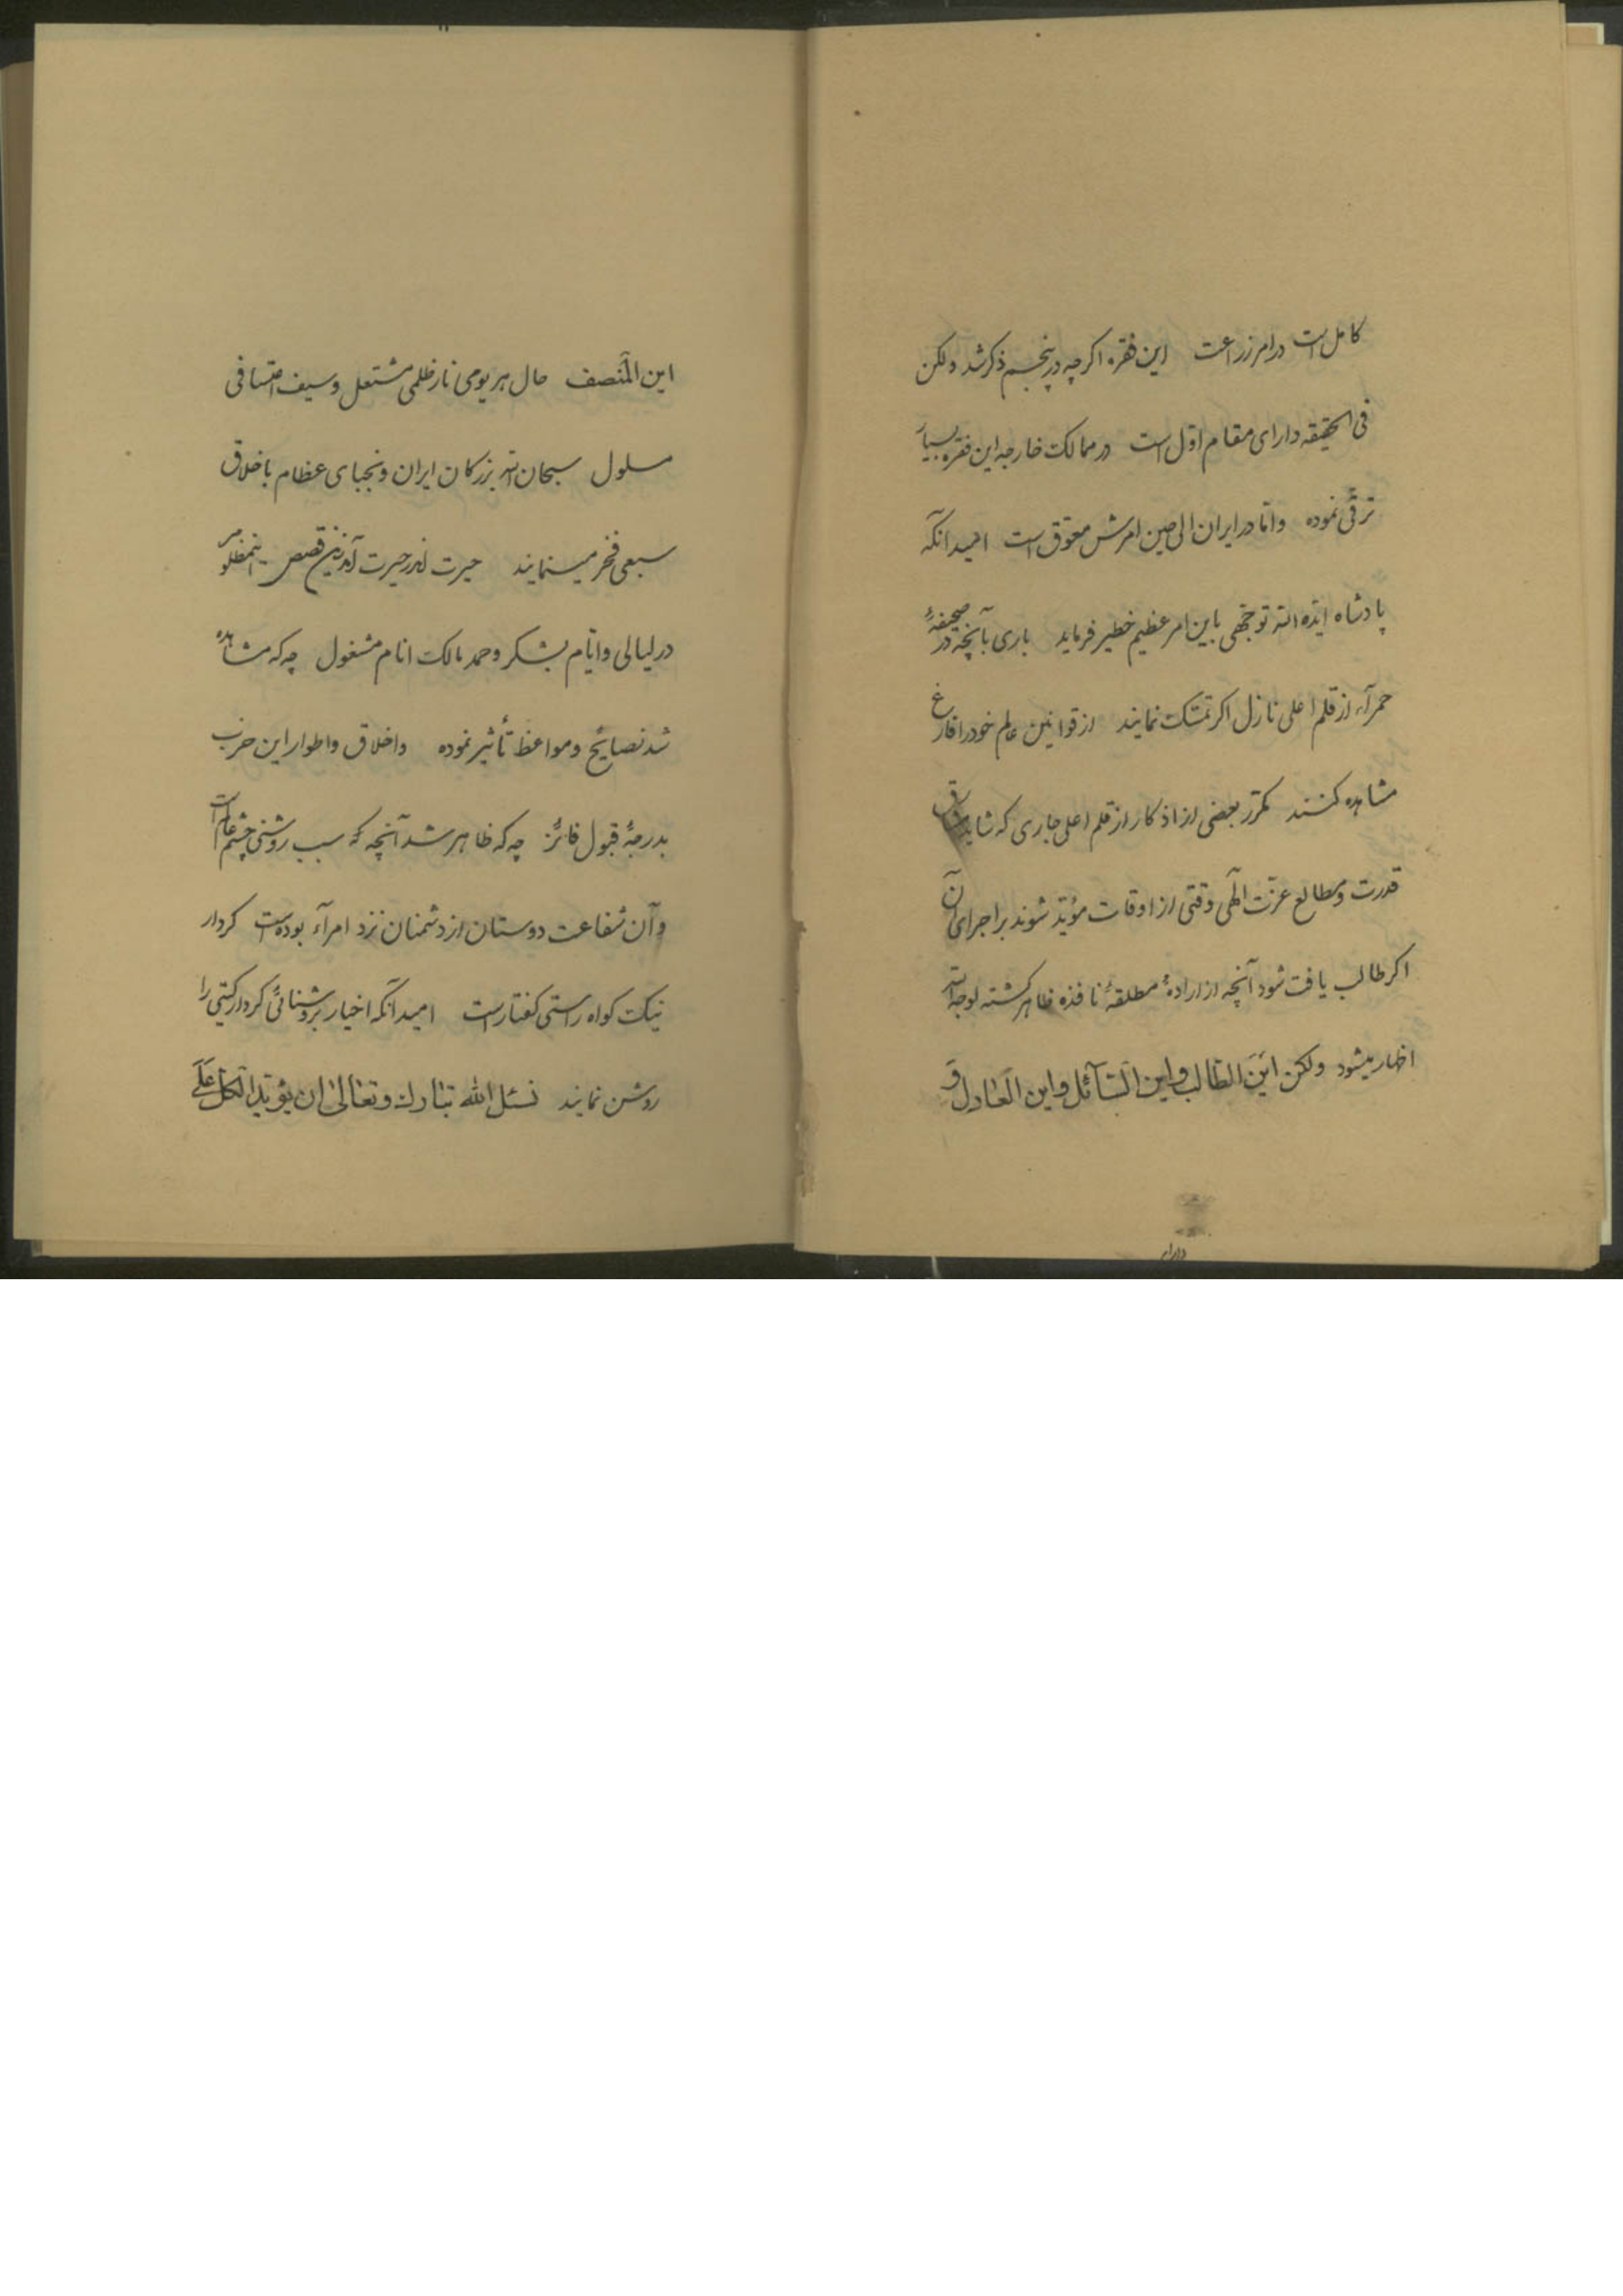 کامل است در امر زراعت این فقره اکر چه در پنجم ذکر شد ولکن
فی الحقیقه دارای مقام اوّل است در ممالک خارجه این فقره بسیار
ترقّی نموده وامّا در ایران الی حین امرش معوّق است امید آنکه
پادشاه ایّده الله توجّهی باین امر عظیم خطیر فرماید باری بآنچه در صحیفهٔ
حمرآء از قلم اعلی نازل اکر تمسّک نمایند از قوانین عالم خود را فارغ
مشاهده کنند مکرّر بعضی از اذکار از قلم اعلی جاری که شاید مشارق
قدرت ومطالع عزّت الٓهی وقتی از اوقات مؤیّد شوند بر اجرای آن
اکر طالب یافت شود آنچه از ارادهٔ مطلقهٔ نافذه ظاهر کشته لوجه الله
اظهار میشود ولکن این الطّالب واین السّآئل واین العادل و
دارای
این المنصف حال هر یومی نار ظلمی مشتعل وسیف اعتسافی
مسلول سبحان الله بزرکان ایران ونجبای عظام باخلاق
سبعی فخر مینمایند حیرت اندر حیرت آمد زین قصص اینمظلوم
در لیالی وایّام بشکر وحمد مالک انام مشغول چه که مشاهده
شد نصایح ومواعظ تأثیر نموده واخلاق واطوار این حزب
بدرجهٔ قبول فائز چه که ظاهر شد آنچه که سبب روشنی چشم عالم است
وآن شفاعت دوستان از دشمنان نزد امرآء بوده است کردار
نیک کواه راستی کفتار است امید آنکه اخیار بروشنائی کردار کیتی را
روشن نمایند نسئل الله تبارک وتعالی ان یؤیّد الکلّ علی